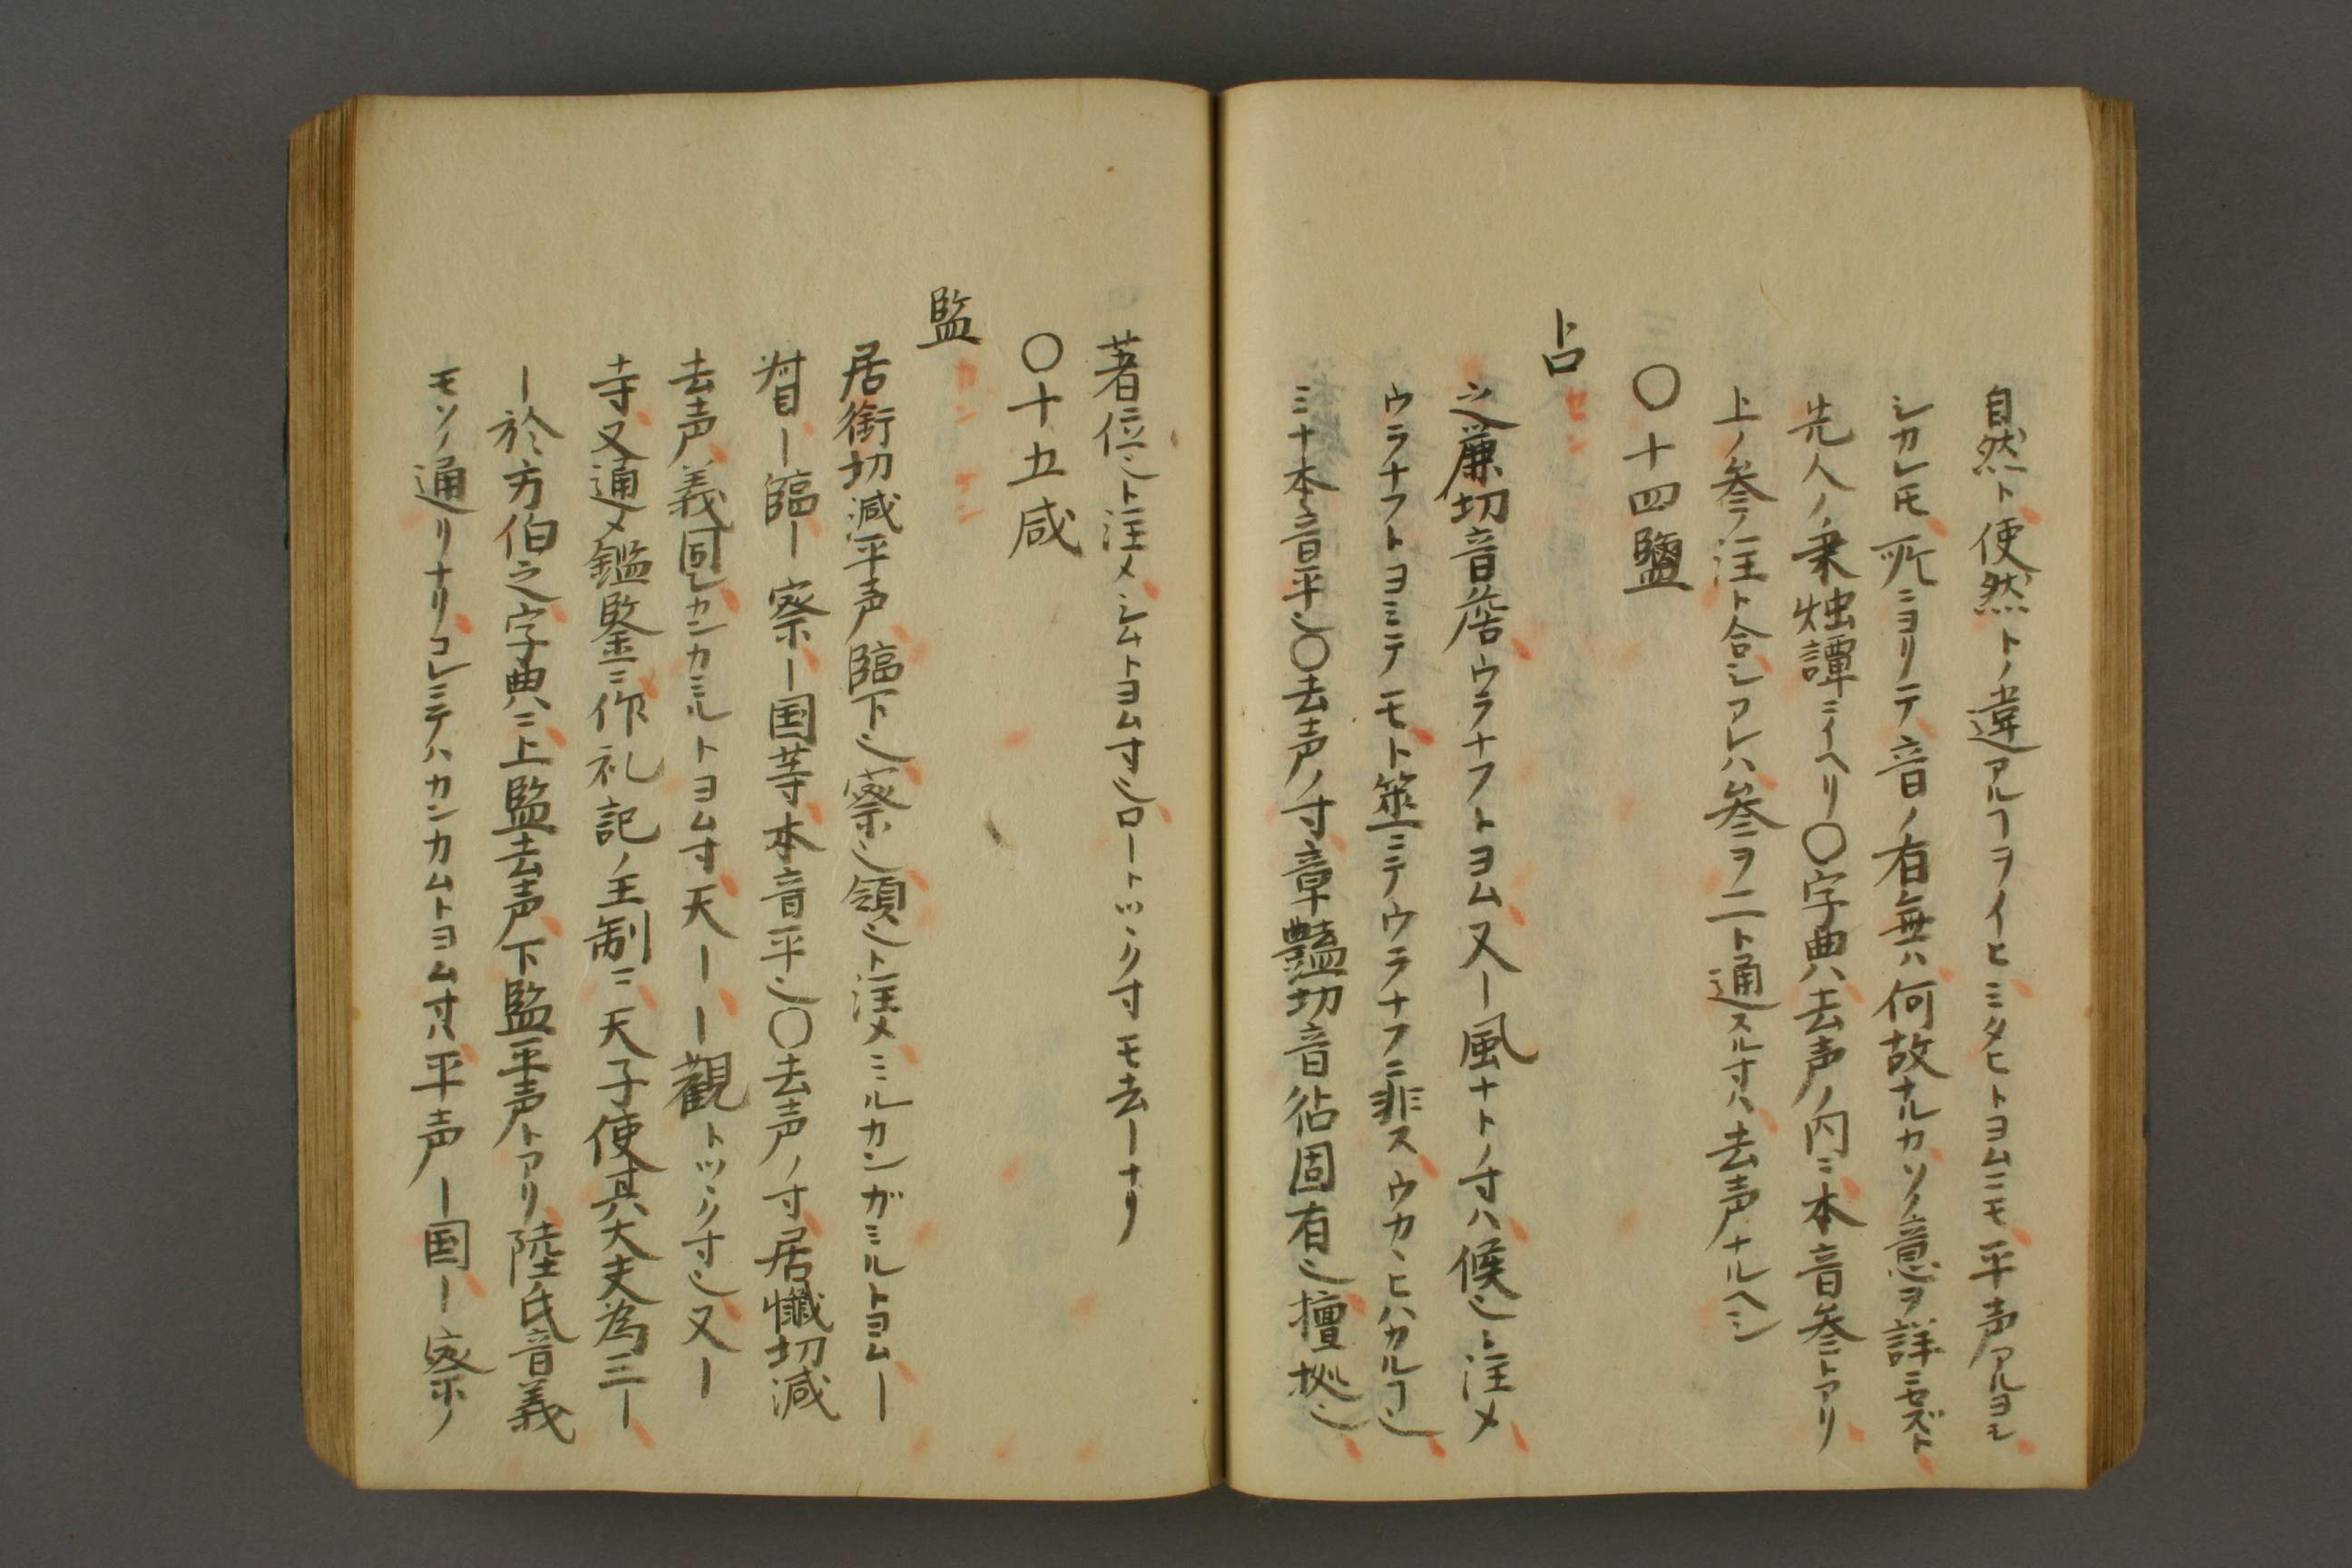 自然ト使然トノ違アルヿヲイヒミタヒトヨムニモ平声アルヨシ
シカレ𪜈所ニヨリテ音ノ有無ハ何故ナルカソノ意ヲ詳ニセズト
先人ノ秉燭譚ニイヘリ〇字典ハ去声ノ内ニ本音参トアリ
上ノ参ノ注ト合シアレハ参ヲ二ト通スル寸ハ去声ナルヘシ
〇十四鹽
占
セン
之廉切音詹ウラナフトヨム又ー風ナトノ寸ハ候也ト注メ
ウラナフトヨミテモト筮ニテウラナフニ非スウカヽヒハカルヿ也
ミナ本音平也〇去声ノ寸章豔切音佔固有也擅拠也
著位也ト注メシムトヨム寸也ロートツヽク寸モ去ーナリ
〇十五咸
監
カン ケン
居銜切減平声臨下也察也領也ト注メミルカンガミルトヨムー
督ー臨ー察ー国等本音平也〇去声ノ寸居懺切減
去声義同シカンカミルトヨム寸天ーー觀トツヽク寸也又ー
寺又通メ鑑鋻ニ作礼記ノ王制ニ天子使其大夫為三ー
ー於方伯之字典ニ上監去声下監平声トアリ陸氏音義
モソノ通リナリコレミテハカンカムトヨム寸ハ平声ー国ー察ノ